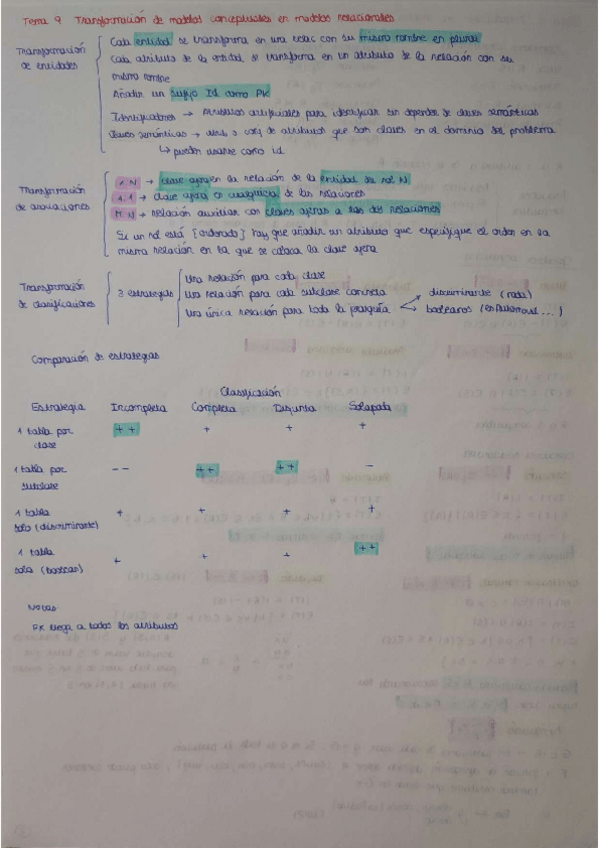 Tema 9 Transformación de modelos conceptuales en modelos relacionales
Transformación de entidades
Cada entidad se transforma en una relac con su mismo nombre en plural
Cada atributo de la entidad se transforma en un atributo de la relación con su
mismo nombre
Añadir un sufijo Id como PK
Identificadores → Atributos artificiales para identificar sin depender de claves semánticas
Claves semánticas → atrib o conj de atributos que son claves en el dominio del problema
↳ pueden usarse como id
Transformación de asociaciones
1:N → clave ajena en la relación de la entidad del rol N
1:1 → clave ajena en cualquiera de las relaciones
M:N → relación auxiliar con claves ajenas a las dos relaciones
Si un rol está {ordenado} hay que añadir un atributo que especifique el orden en la
misma relación en la que se coloca la clave ajena
Transformación de clasificaciones
3 estrategias
Una relación para cada clase
Una relación para cada subclase concreta
Una única relación para toda la jerarquía
discriminante
booleanos
Comparación de estrategias
Clasificación
Estrategia Incompleta Completa Disjunta Solapada
1 tabla por clase ++ + + +
1 tabla por subclase -- ++ ++ -
1 tabla sola (discriminante) + + + +
1 tabla sola + + + ++
Notas
PK llega a todos los atributos